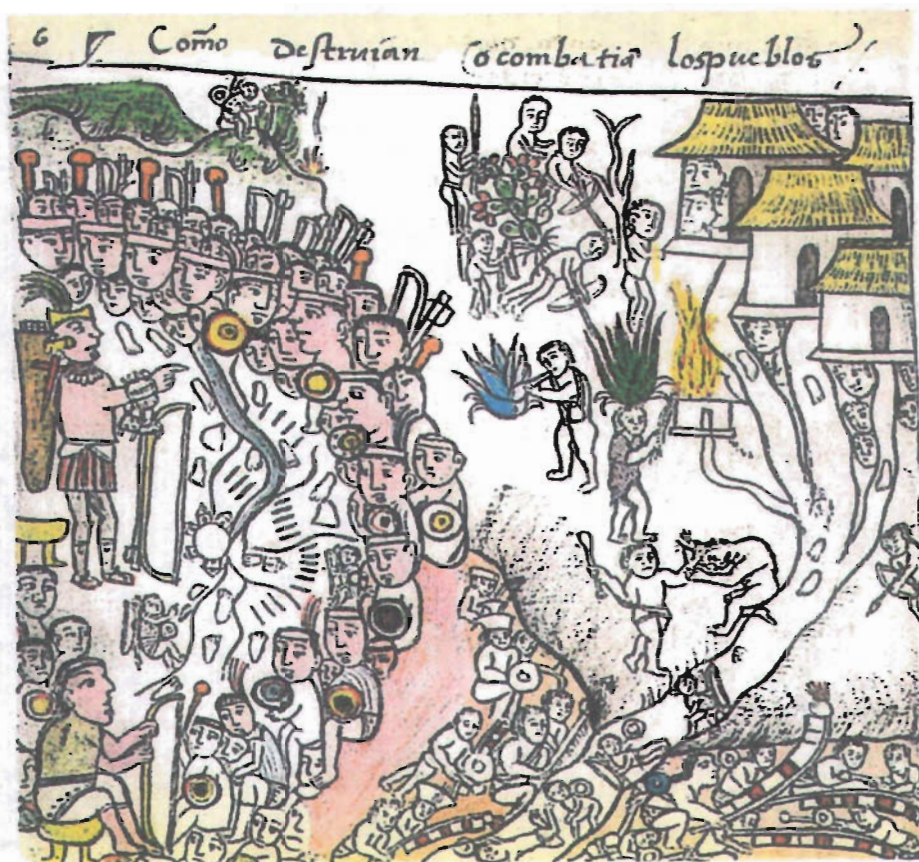 6 Como destruian o combatian los pueblos